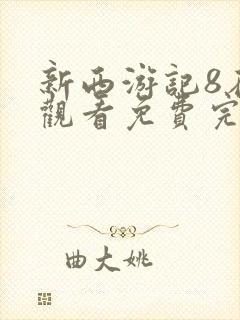 新西游記8
觀看免費完
曲大姚